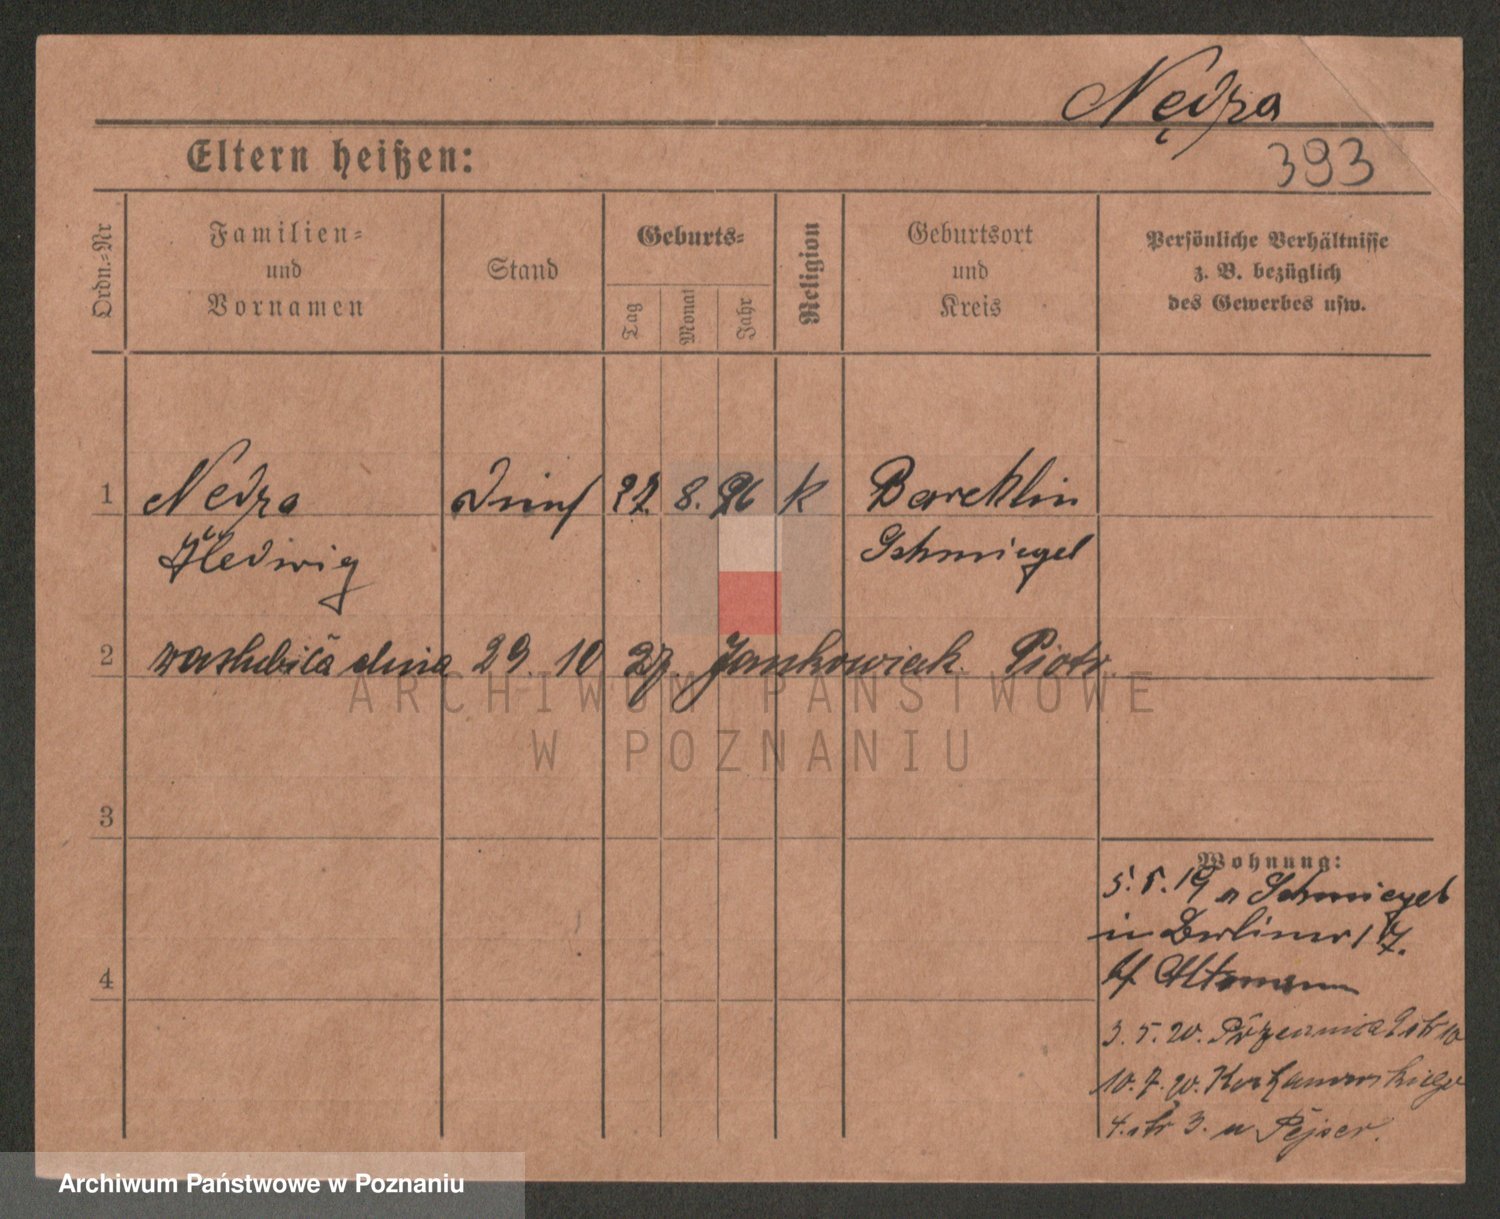 Nędza
393
Eltern heißen:
Ordn.-Nr
Familien-
und
Vornamen
Stand
Geburts-
Tag
Monat
Jahr
Religion
Geburtsort
und
Kreis
Persönliche Verhältnisse
z. B. bezüglich
des Gewerbes usw.
1 Nedza 27. 8. 96 k
Hedwig Schmiegel
2 zaślubiła dnia 29. 10 27. Jankowiak Piotr.
ARCHIWUM PAŃSTWOWE
W POZNANIU
3
4
Wohnung:
5.5.19 n Schmiegel
in Berliner 17.
bf Altmann
3.5.20.
10.7.20. Kochanowskiego
4. str 3. u Pejser.
Archiwum Państwowe w Poznaniu